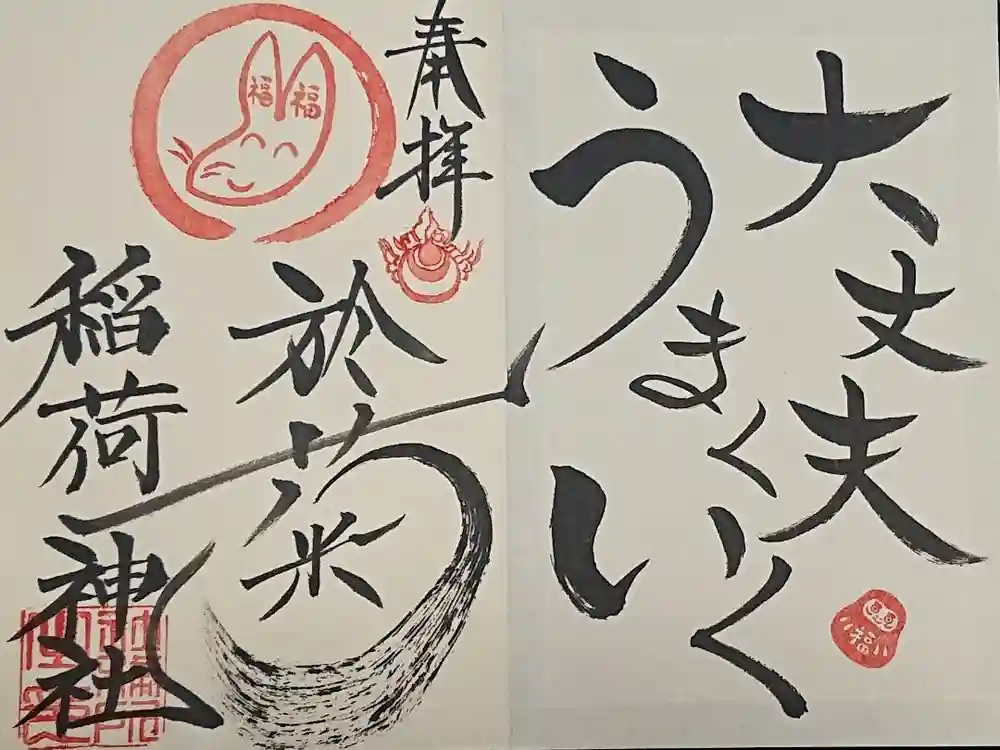 大丈夫
うまくいく
福
奉拝
於菊
稲荷神社
福福